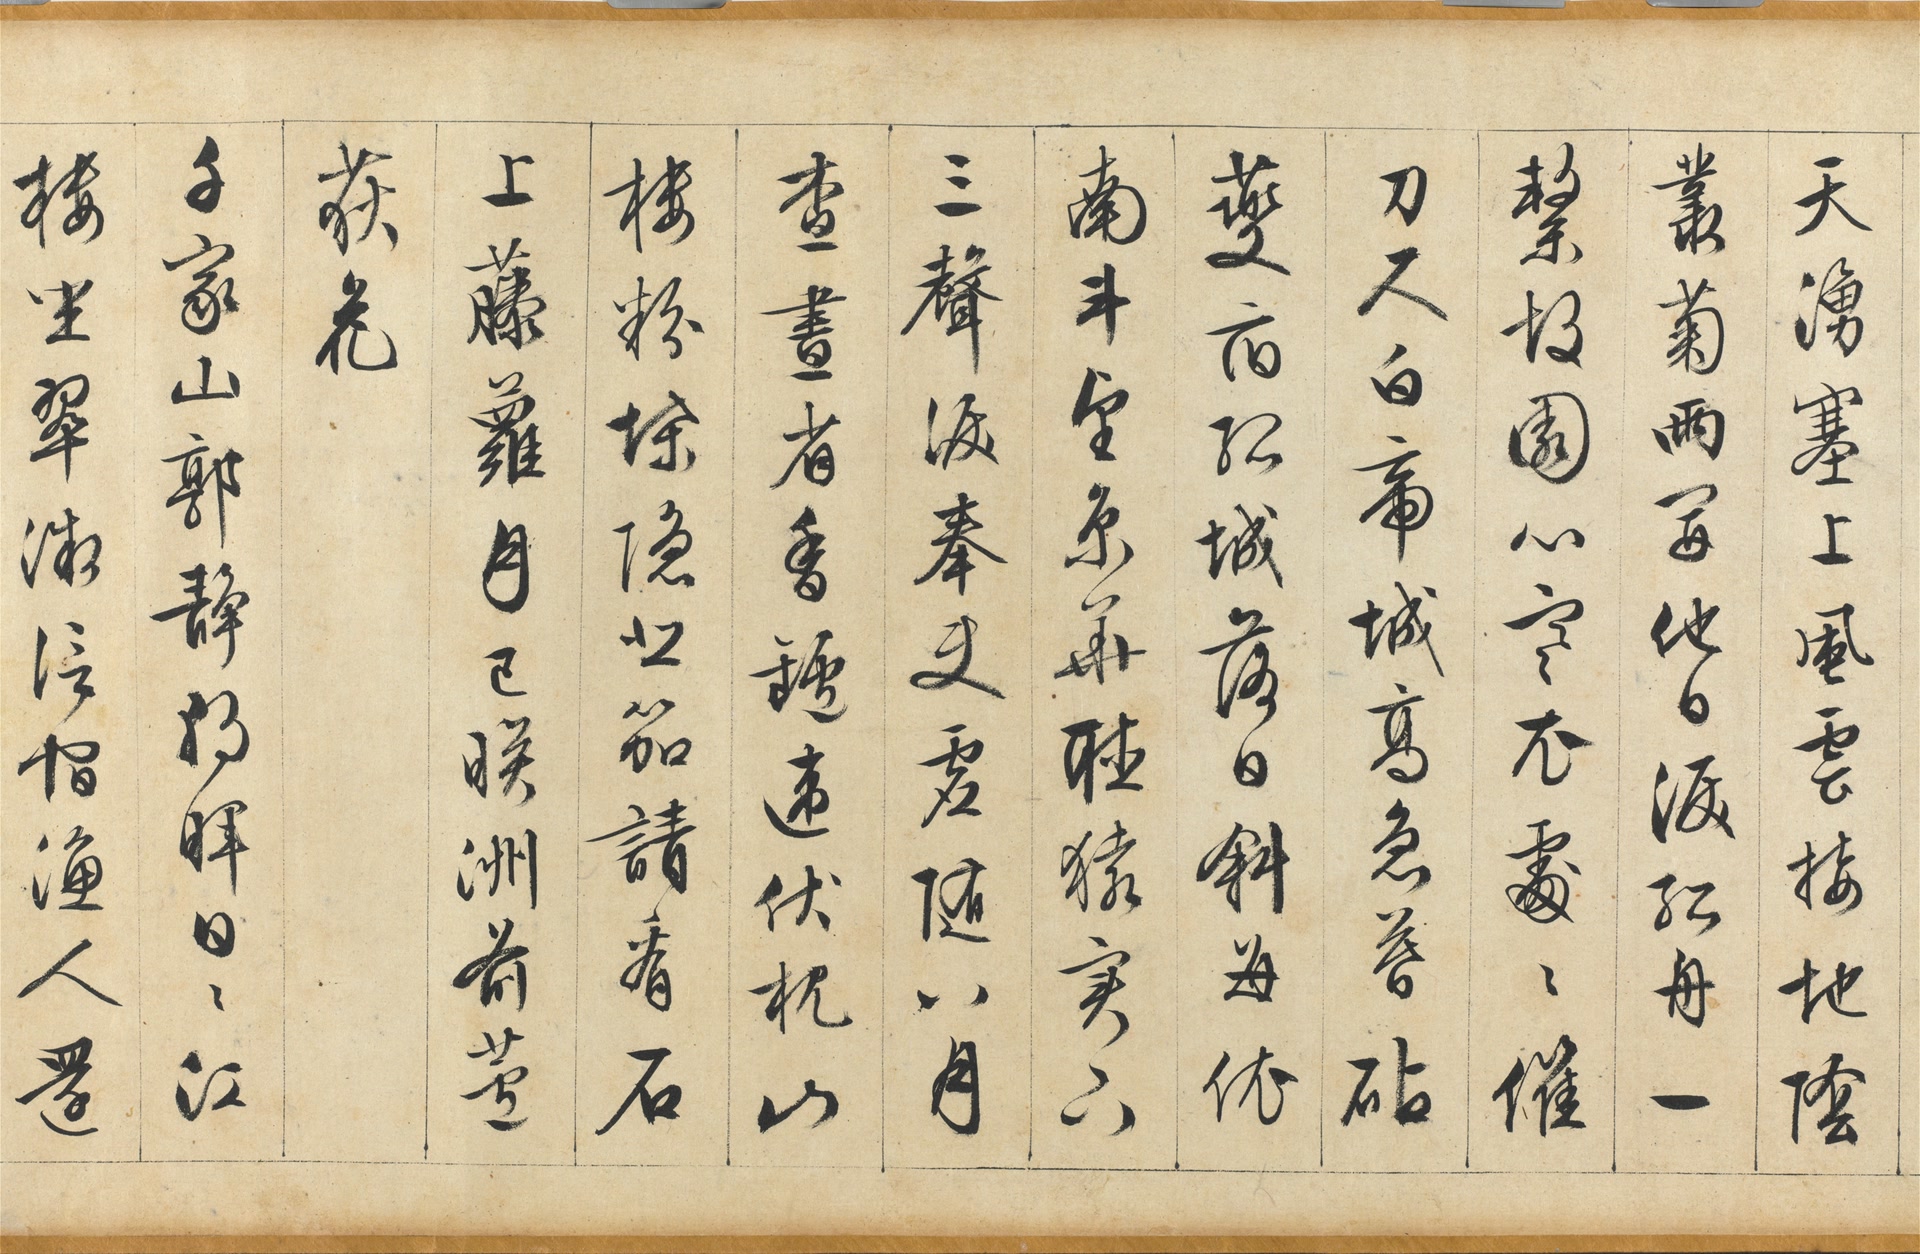 天湧塞上風雲接地陰
叢菊兩開他日淚孤舟一
繫故園心寒衣處〻催
刀尺白帝城高急暮砧
夔府孤城落日斜每依
南斗望京華聽猿實下
三聲淚奉使虛隨八月
查畫省香鑪違伏枕山
樓粉堞隱悲笳請看石
上藤蘿月已映洲前蘆
荻花
千家山郭靜朝暉日〻江
樓坐翠微信宿漁人還